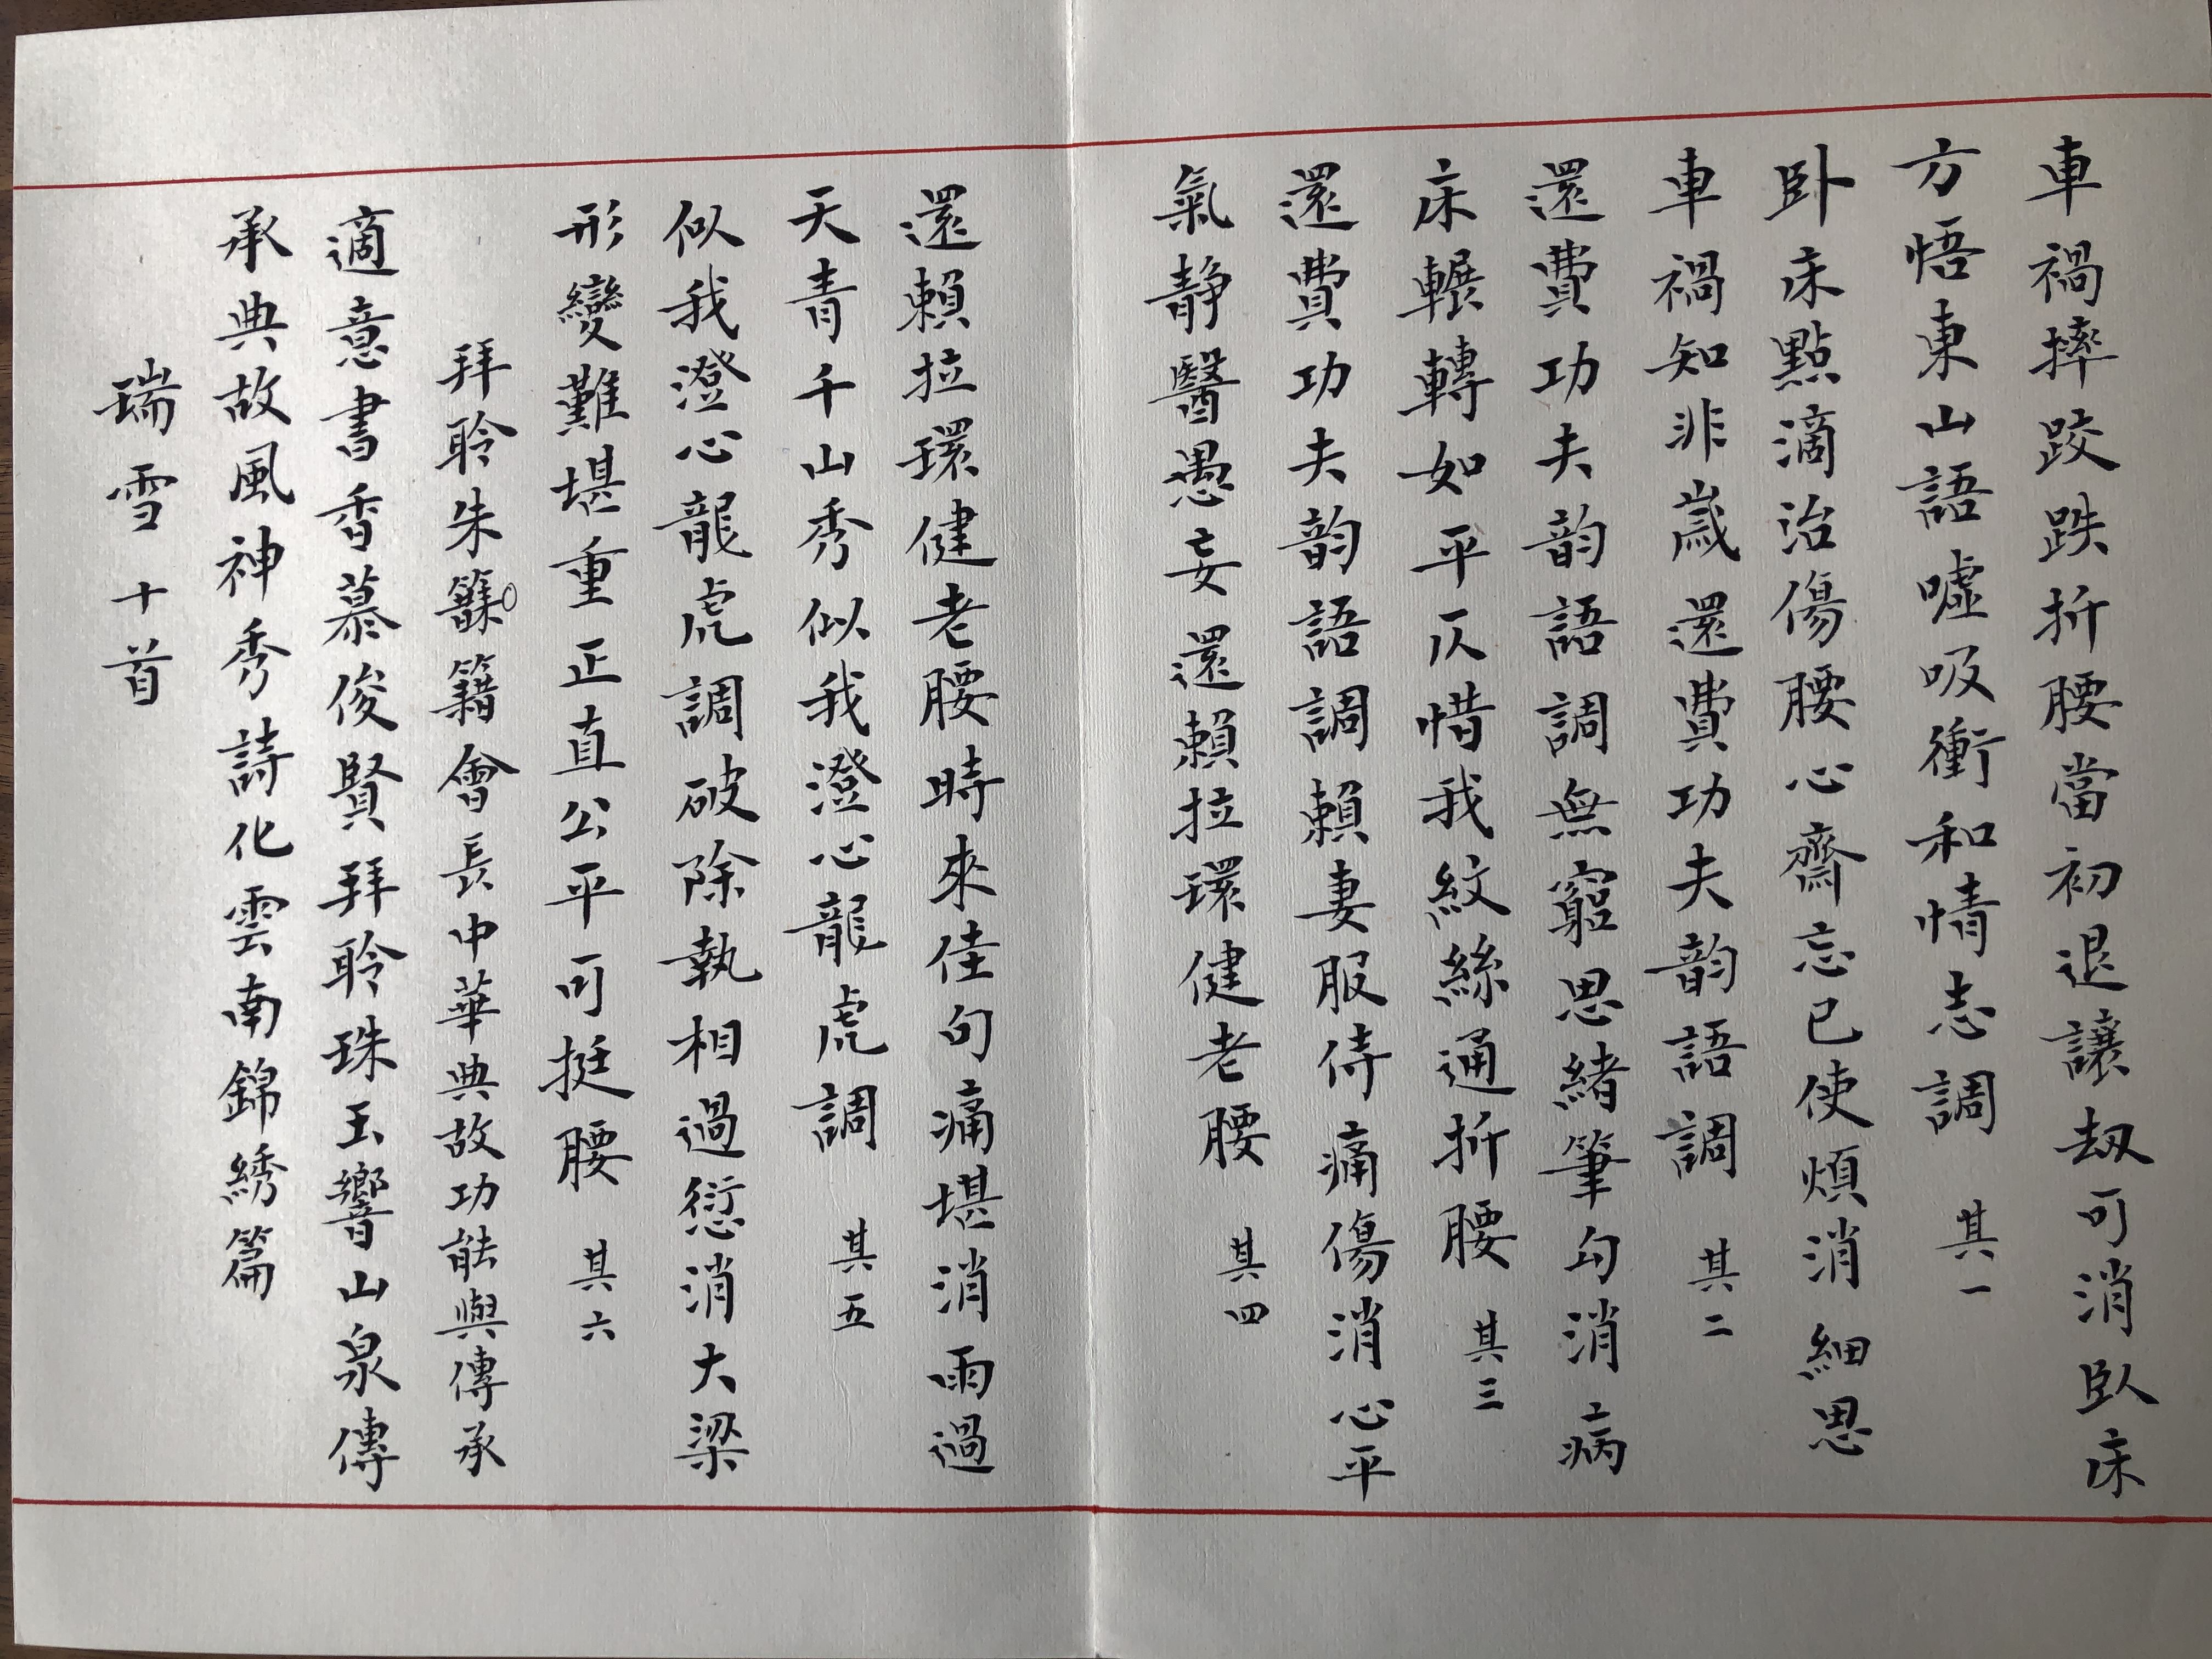 車禍摔跤跌折腰當初退讓劫可消臥床
方悟東山語噓吸衝和情志調 其一
卧床點滴治傷腰心齋忘己使煩消細思
車禍知非歲還費功夫韵語調 其二
還費功夫韵語調無窮思緒筆勾消病
床輾轉如平仄惜我紋絲通折腰 其三
還費功夫韵語調賴妻服侍痛傷消心平
氣静醫愚妄還賴拉環健老腰 其四
還賴拉環健老腰時來佳句痛堪消雨過
天青千山秀似我澄心龍虎調 其五
似我澄心龍虎調破除執相過愆消大梁
形變難堪重正直公平可挺腰 其六
拜聆朱籍會長中華典故功能與傳承
適意書香慕俊賢拜聆珠玉響山泉傳
承典故風神秀詩化雲南錦綉篇
瑞雪十首